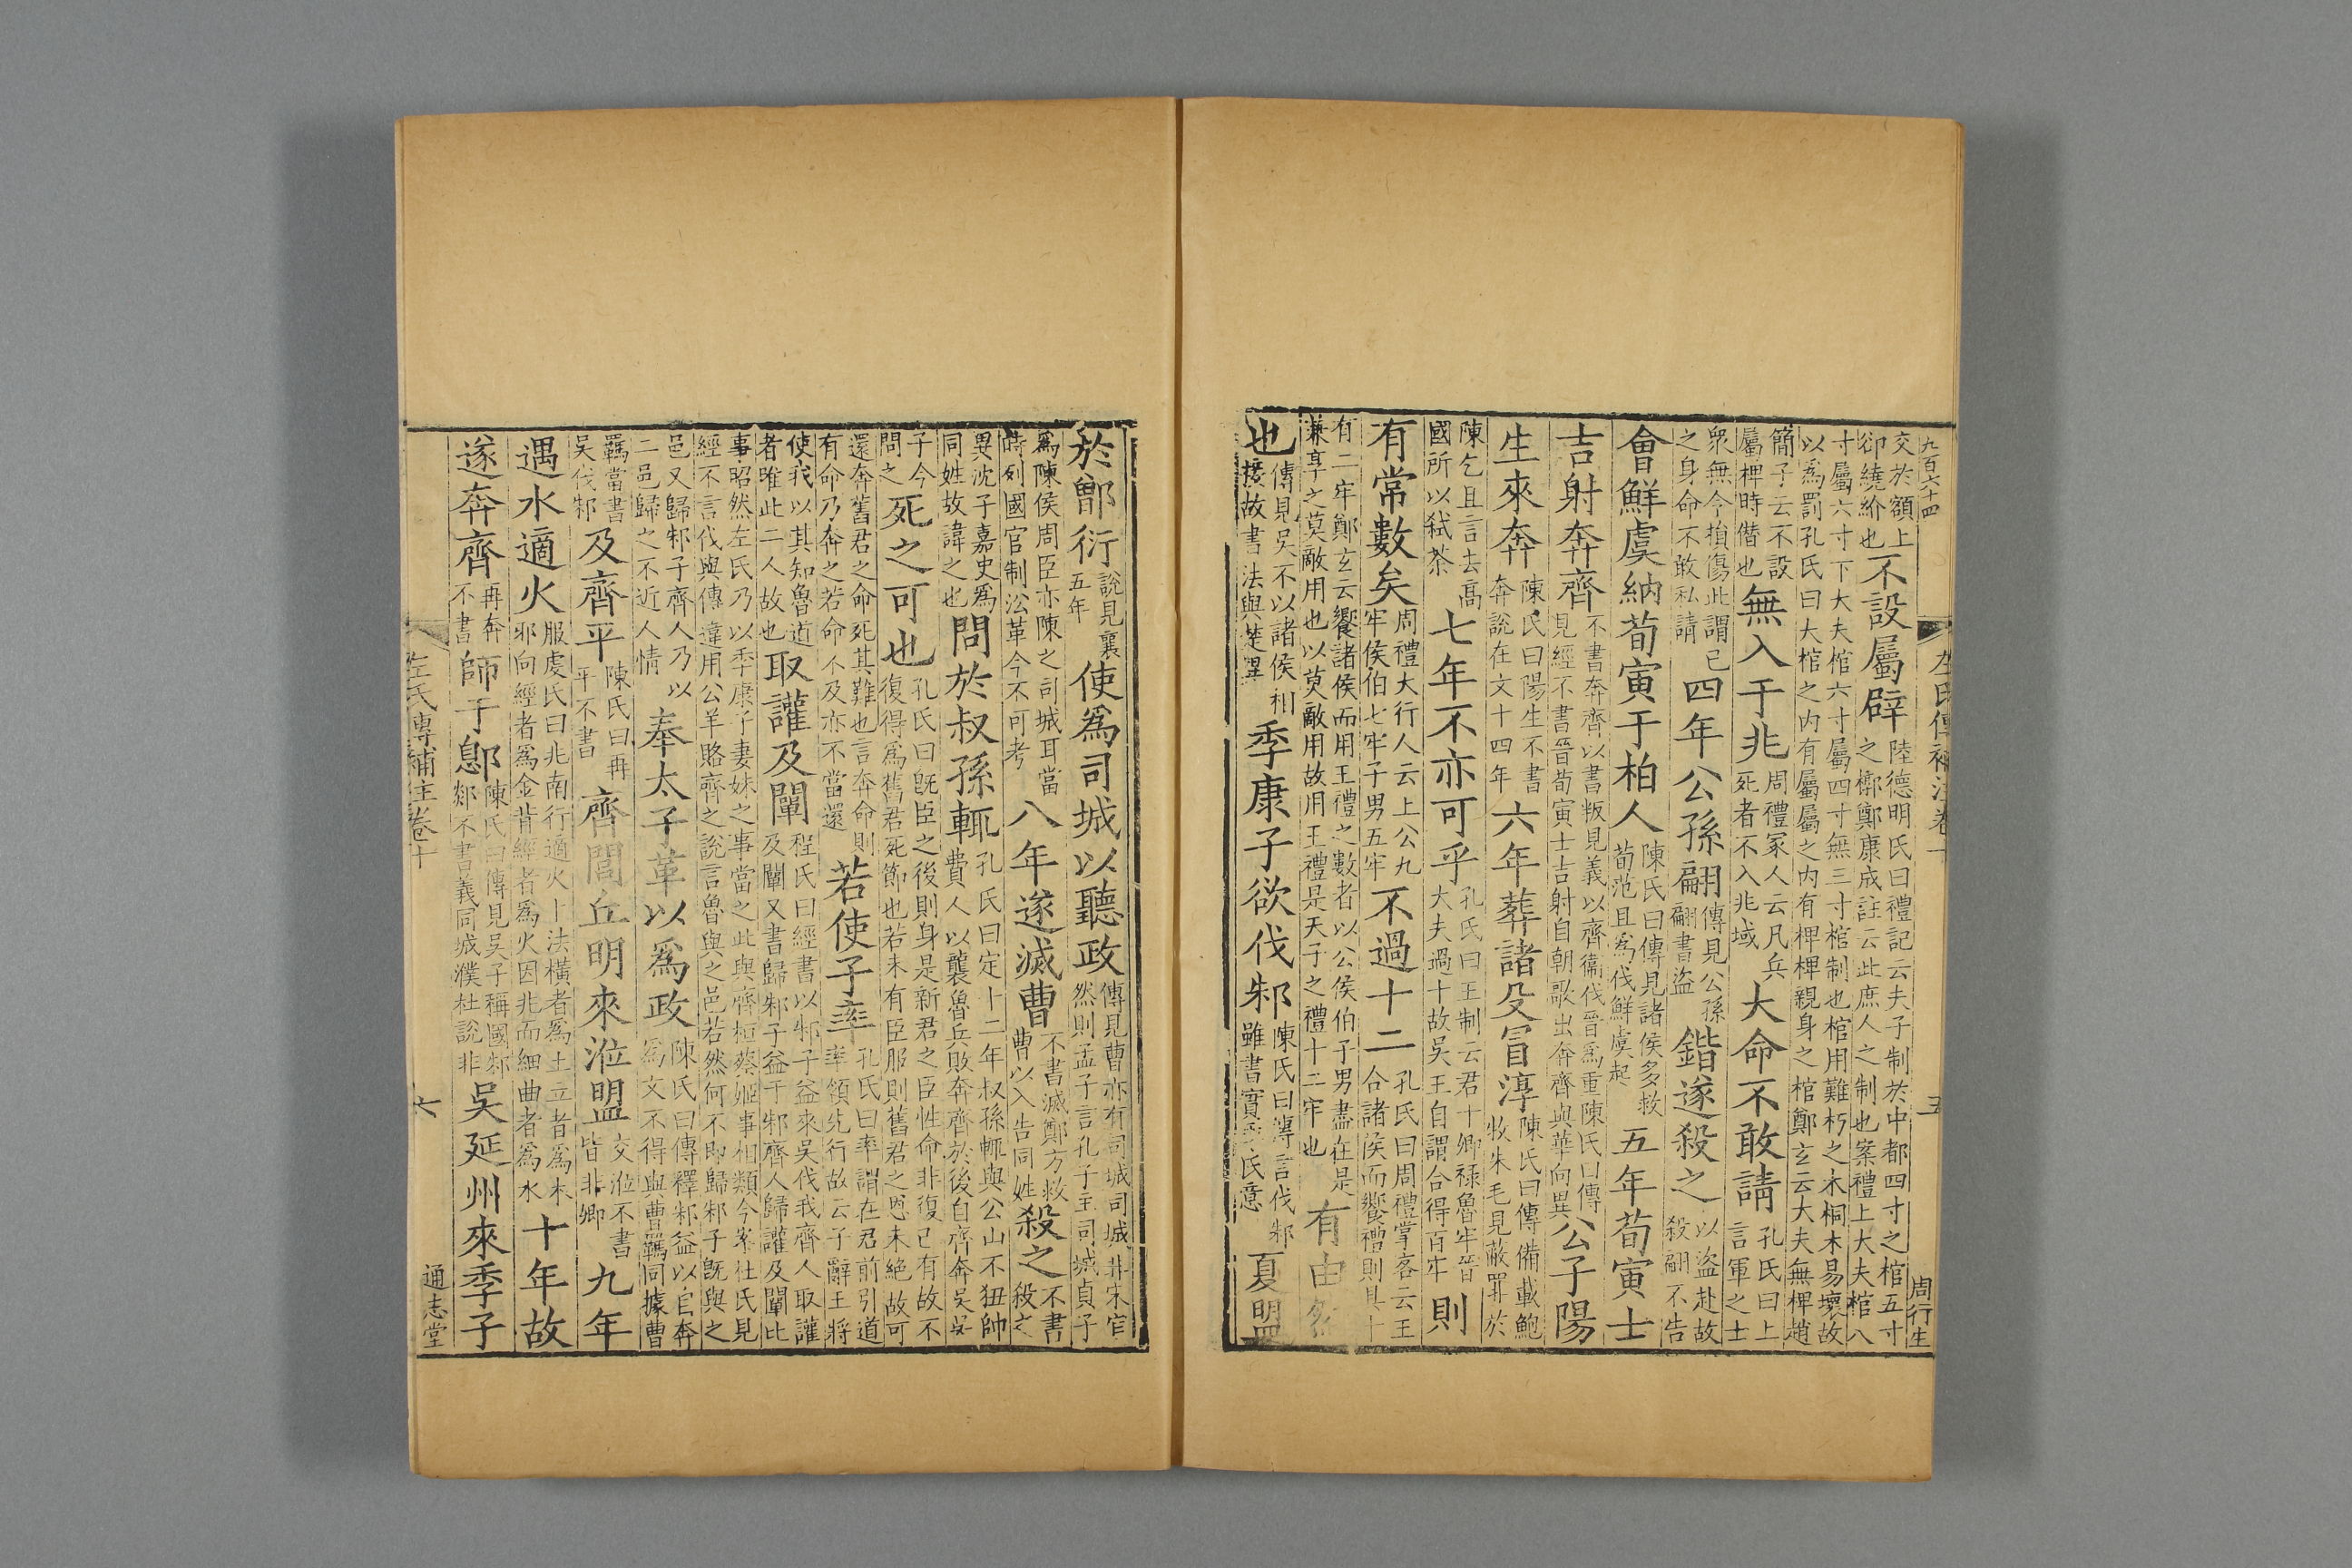 九百六十四
左氏傳補注卷十
五
周行生
交於額上卻繞紒也不設屬辟陸德明氏曰禮記云夫子制於中都四寸之棺五寸之槨鄭康成註云此庶人之制也案禮上大夫棺八
寸屬六寸下大夫棺六寸屬四寸無三寸棺制也棺用難朽之木桐木易壞故以為罰孔氏曰大棺之内有屬屬之内有椑椑親身之棺鄭玄云大夫無椑趙
簡子云不設屬椑時僭也無入于兆周禮冢人云凡兵死者不入兆域大命不敢請孔氏曰上言軍之士
衆無今損傷此謂己之身命不敢私請四年公孫翩傳見公孫翩書盗鍇遂殺之以盗赴故殺翩不告
會鮮虞納荀寅于柏人陳氏曰傳見諸侯多救荀范且為伐鮮虞起五年荀寅士
吉射奔齊不書奔齊以書叛見義以齊衛伐晉為重陳氏曰傳見經不書晉荀寅士吉射自朝歌出奔齊與華向異公子陽
生來奔陳氏曰陽生不書奔說在文十四年六年葬諸殳冒淳陳氏曰傳備載鮑牧朱毛見蔽罪於
陳乞且言去高國所以弑荼七年不亦可乎孔氏曰王制云君十卿禄魯牢晉大夫過十故吳王自謂合得百牢則
有常數矣周禮大行人云上公九牢侯伯七牢子男五牢不過十二孔氏曰周禮掌客云王合諸侯而饗禮則具十
有二牢鄭玄云饗諸侯而用王禮之數者以公侯伯子男盡在是兼享之莫敵用也以莫敵用故用王禮是天子之禮十二牢也有由
也傳見吳不以諸侯相接故書法與楚異季康子欲伐邾陳氏曰傳言伐邾雖書實季氏意夏盟
於鄫衍說見襄五年使為司城以聽政傳見曹亦有司城司城非宋官然則孟子言孔子主司城貞子
為陳侯周臣亦陳之司城耳當時列國官制沿革今不可考八年遂滅曹不書滅鄭方救曹以入告同姓殺之不書殺之
異沈子嘉史為同姓故諱之也問於叔孫輒孔氏曰定十二年叔孫輒與公山不狃帥費人以襲魯兵敗奔齊於後自齊奔吳吳
子今問之死之可也孔氏曰既臣之後則身是新君之臣性命非復己有故不復得為舊君死節也若未有臣服則舊君之恩未絕故可
還奔舊君之命死其難也言奔命則有命乃奔之若命不及亦不當還若使子率孔氏曰率謂在君前引道率領先行故云子辭王將
使我以其知魯道者雖此二人故也取讙及闡程氏曰經書以邾子益來吳伐我齊人取讙及闡又書歸邾子益于邾齊人歸讙及闡比
事昭然左氏乃以季康子妻妹之事當之此與齊桓蔡姬事相類今案杜氏見經不言伐與傳違用公羊賂齊之說言魯與之邑若然何不即歸邾子既與之
邑又歸邾子齊人乃以二邑歸之不近人情奉太子革以為政陳氏曰傳釋邾益以自奔為文不得與曹羈同據曹
羈當書吳伐邾及齊平陳氏曰再平不書齊閭丘明來涖盟交涖不書皆非卿九年
遇水適火服虔氏曰兆南行適火卜法橫者為土立者為木邪向經者為金背經者為火因兆而細曲者為水十年故
遂奔齊再奔不書師于鄎陳氏曰傳見吳子稱國邾郯不書義同城濮杜說非吳延州來季子
左氏傳補注卷十
六
通志堂